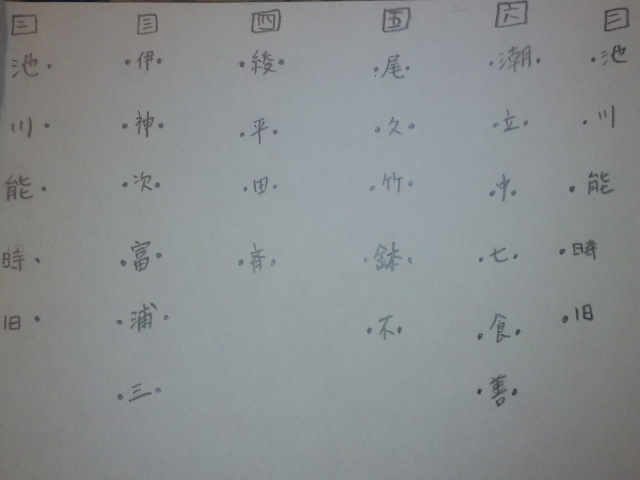 二 三 四 五 六 二
池 伊 綾 尾 潮 池
川 神 平 久 立 川
能 次 田 竹 中 能
時 富 斉 鉢 七 時
旧 浦 不 食 旧
三 善